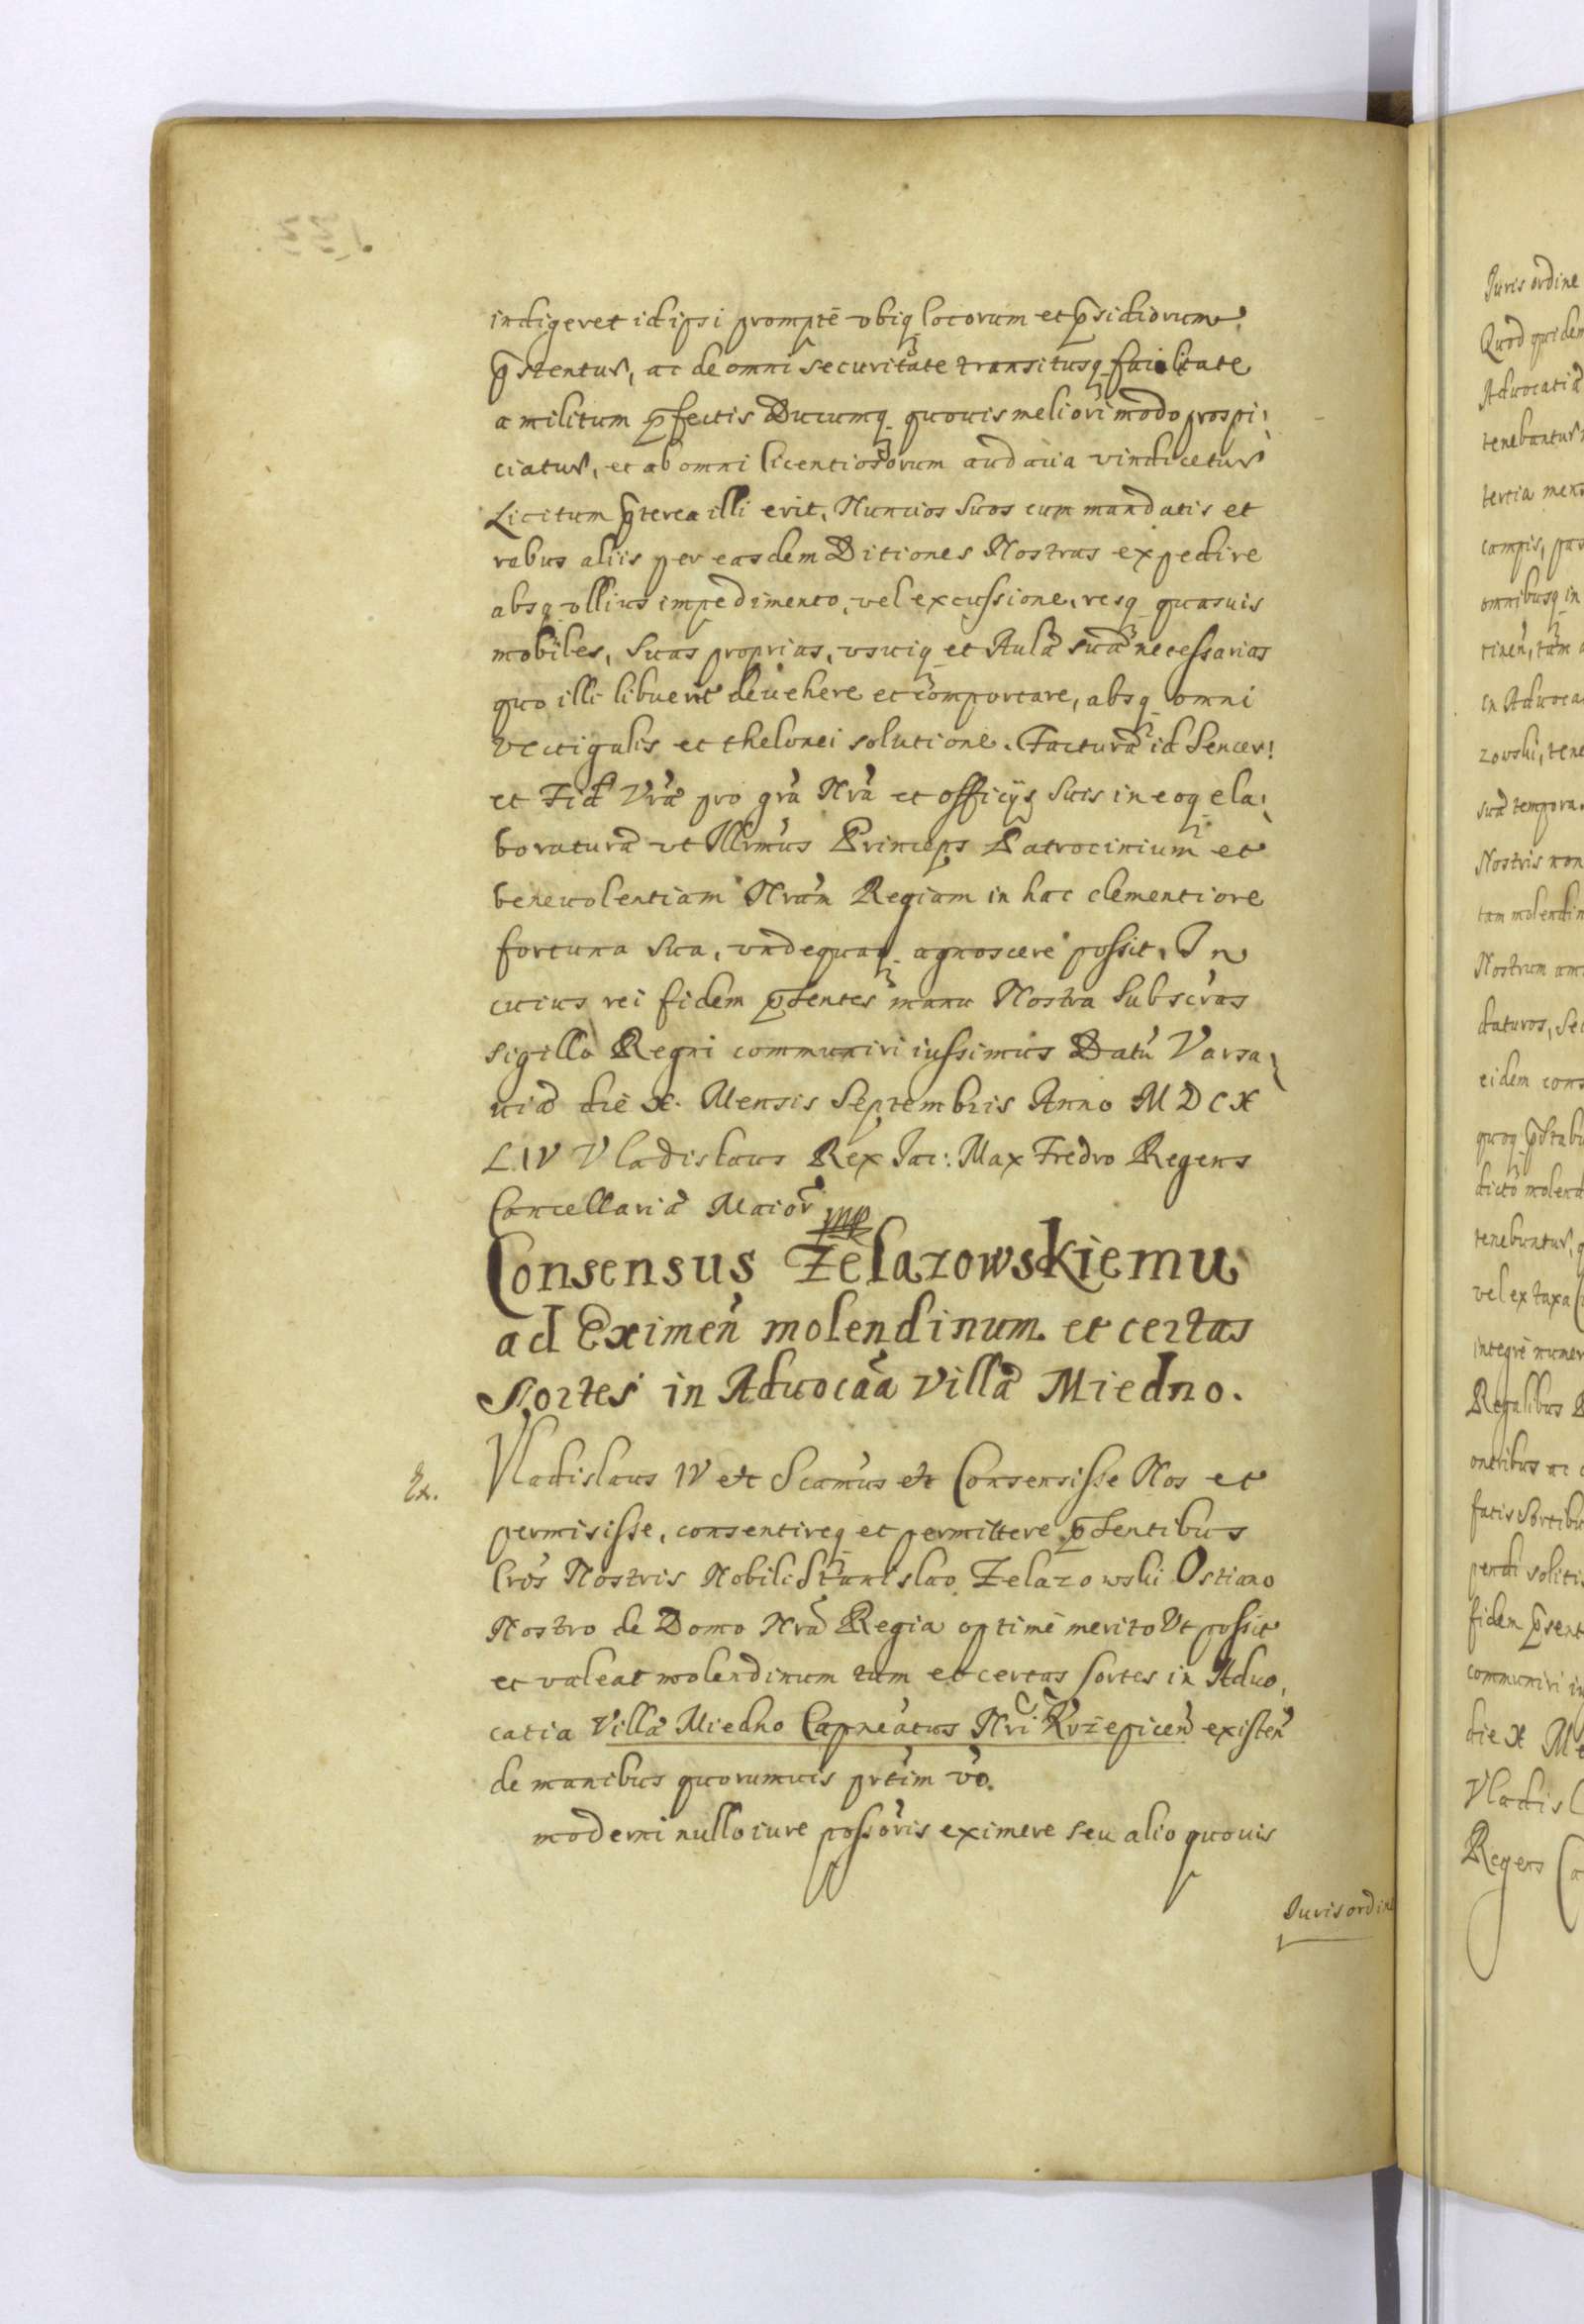 indigeret id ipsi promptè vbiq locorum et psidiorum
pstentur, ac de omni securitate transitusq facilitate
a militum pfectis Ducumq quouis meliori modo prospi:
ciatur, et ab omni licentiosorum audacia vindicetur
Licitum pterea illi erit, Nuncios Suos cum mandatis et
rebus aliis per easdem Ditiones Nostras expedire
absq vllius impedimento, vel excussione, resq quasuis
mobiles, Suas proprias, vsuiq et Aulæ suæ necessarias
quo illi libuerit deuehere et comportare, absq omni
vectigalis et thelonei solutione. Facturæ id Sencer:
et Fid Vræ pro gra Nra et officijs Suis in eoq ela:
boraturæ vt Illrmus Princeps Patrocinium et
beneuolentiam Nram Regiam in hac clementiore
fortuna Sua, vndequaq agnoscere possit. In
cuius rei fidem pntes manu Nostra Subscras
sigillo Regni communiri iussimus Datu Varsa:
uiæ die X. Mensis Septembris Anno MDCX
LIV Vladislaus Rex Jac: Max Fredro Regens
Cancellariæ Maior mp
Consensus Żelazowskiemu
ad Eximen molendinum et certas
Sortes in Aduocaa Villæ Miedno.
Ex. Vladislaus IV etc Scamus etc Consensisse Nos et
permisisse, consentireq et permittere pntibus
lris Nostris Nobili Stanislao Zelazowski Ostiario
Nostro de Domo Nra Regia optimè merito Vt possit
et valeat molendinum tum et certas sortes in Aduo,
catia Villæ Miedno Capneatus Nri Krzepicen existen
de manibus quorumuis prtim vo.
moderni nullo iure possoris eximere seu alio quouis
Juris ordine
Juris ordine
Quod quidem
Aduocatiæ
tenebuntur
tertia mens
campis, pas
omnibusq in
tinen, tam
in Aduoca
zowski, tene
suæ tempora.
Nostris non
tam molendin
Nostrum am
daturos, Se
eidem cons
quoq pstabi
dicto molend
tenebuntur, q
vel ex taxa
integrè numer
Regalibus
oneribus ac
fatis Sortibu
pendi soliti
fidem psent
communiri i
die X Me
Vladisl
Regens Ca